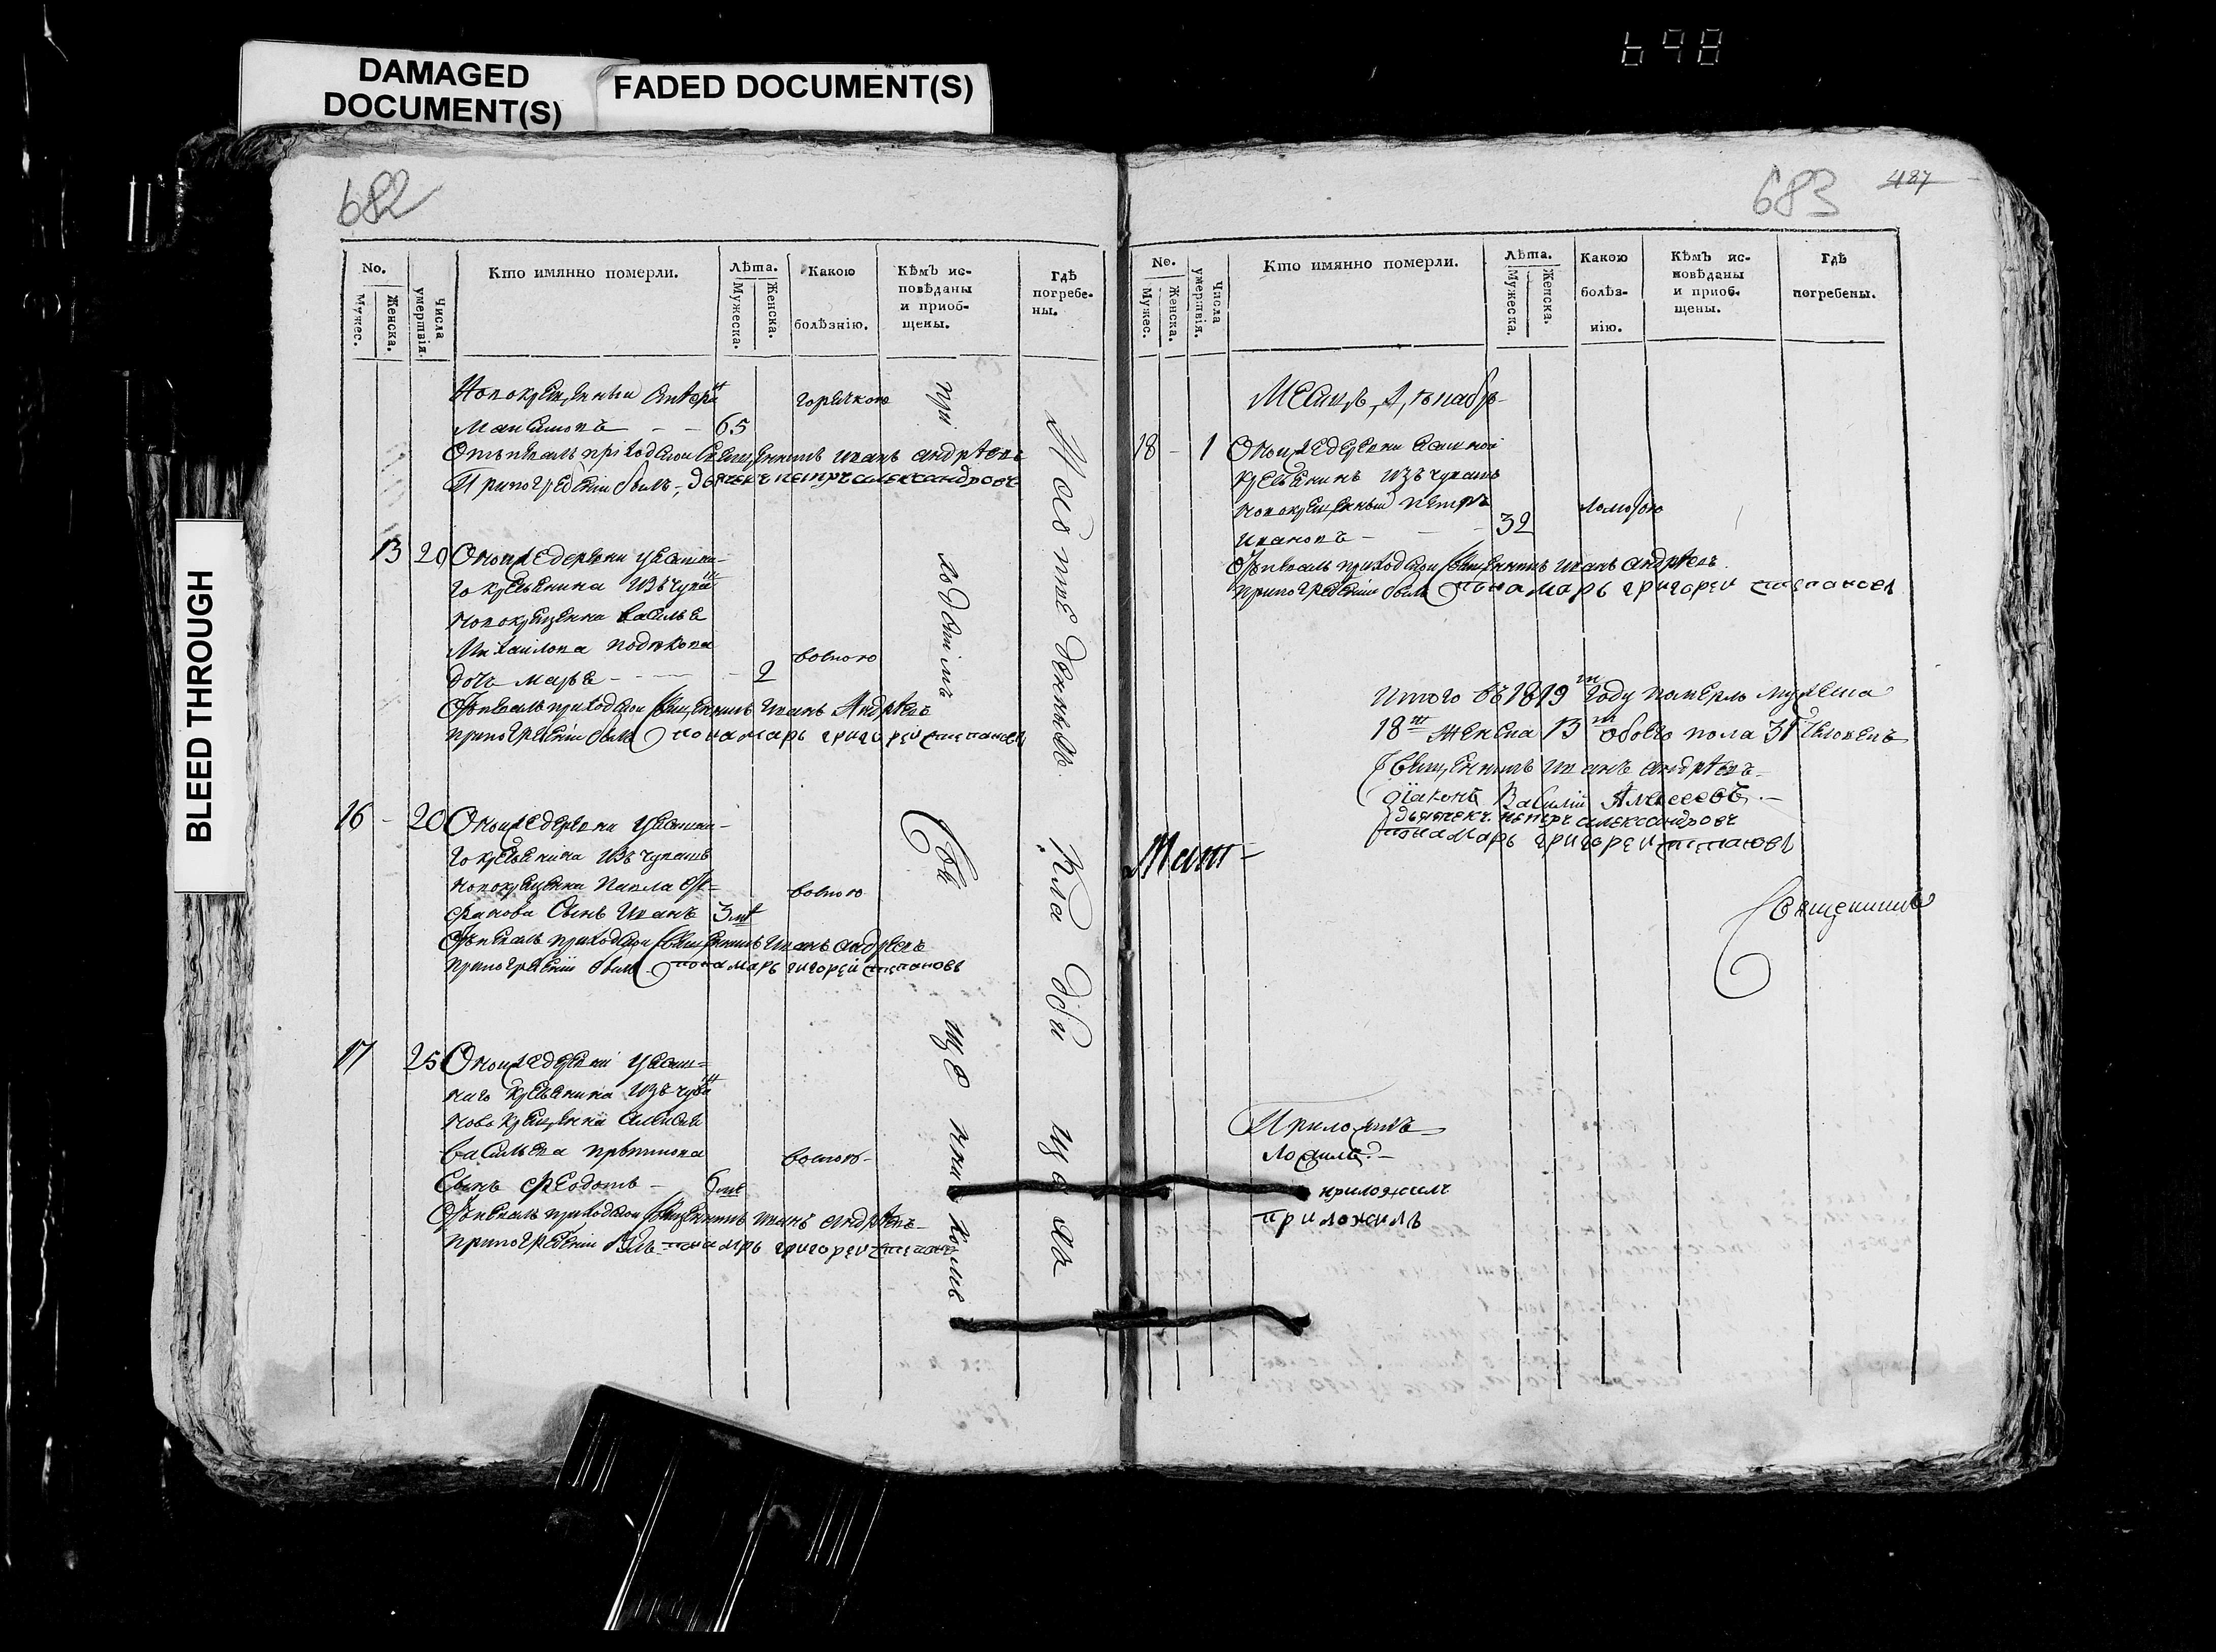 698
DAMAGED
DOCUMENT(S)
FADED DOCUMENT(S)
BLEED THROUGH
682
No.
Мужес.
Женска.
Числа умертвія.
Кто имянно померли.
Лѣта.
Мужеска.
Женска.
Какою
болѣзнію.
Кѣмъ ис-
повѣданы
и приоб-
щены.
Гдѣ
погребе-
ны.
Новокрещенный
Максимовъ 65
горячкою
Отпѣвалъ приходскои Священникъ Иванъ Андрѣевъ
При погребеніи былъ дьячекъ петръ александровъ
13 20 Оной же деревни
го крестьянина изъ чуваш
новокрещенна василья
Михайлова
дочь марья 2
воспою
Отпѣвалъ приходскои Священникъ Иванъ Андрѣевъ
при погребеніи былъ понамарь григорей степановъ
16 - 20 Оной же деревни
го крестьянина изъ чувашъ
новокрещенна Павла
Сынъ Иванъ 3
воспою
Отпѣвалъ приходскои Священникъ Иванъ Андрѣевъ
при погребеніи былъ понамарь григорей степановъ
17 25 Оной же деревни
наго крестьянина изъ чува
новокрещенна алексѣя
васильева
Сынъ Феодотъ
воспою
Отпѣвалъ приходскои Священникъ Иванъ Андрѣевъ
при погребеніи былъ понамарь григорей степановъ
при
ходскимъ
Свя
щенникомъ
кла дби ща ха
683
487
No.
Мужес.
Женска.
Числа умертвія.
Кто имянно померли.
Лѣта.
Мужеска.
Женска.
Какою
болѣз-
нію.
Кѣмъ ис-
повѣданы
и приоб-
щены.
Гдѣ
погребены.
18 - 1 Оной же деревни ясашной
крестьянинъ изъ чувашъ
новокрещенный петръ
Ивановъ 32
Отпѣвалъ приходскои Священникъ Иванъ Андрѣевъ
при погребеніи былъ понамарь григорей степановъ
Итого въ 1819 году померло мужеска
18 женска 13 обоего пола 31 человекъ
Священникъ Иванъ Андрѣевъ
діаконъ Василій Алексеевъ
дьячекъ петръ александровъ
понамарь григорей степановъ
Священникъ
Приложилъ
приложилъ
приложилъ